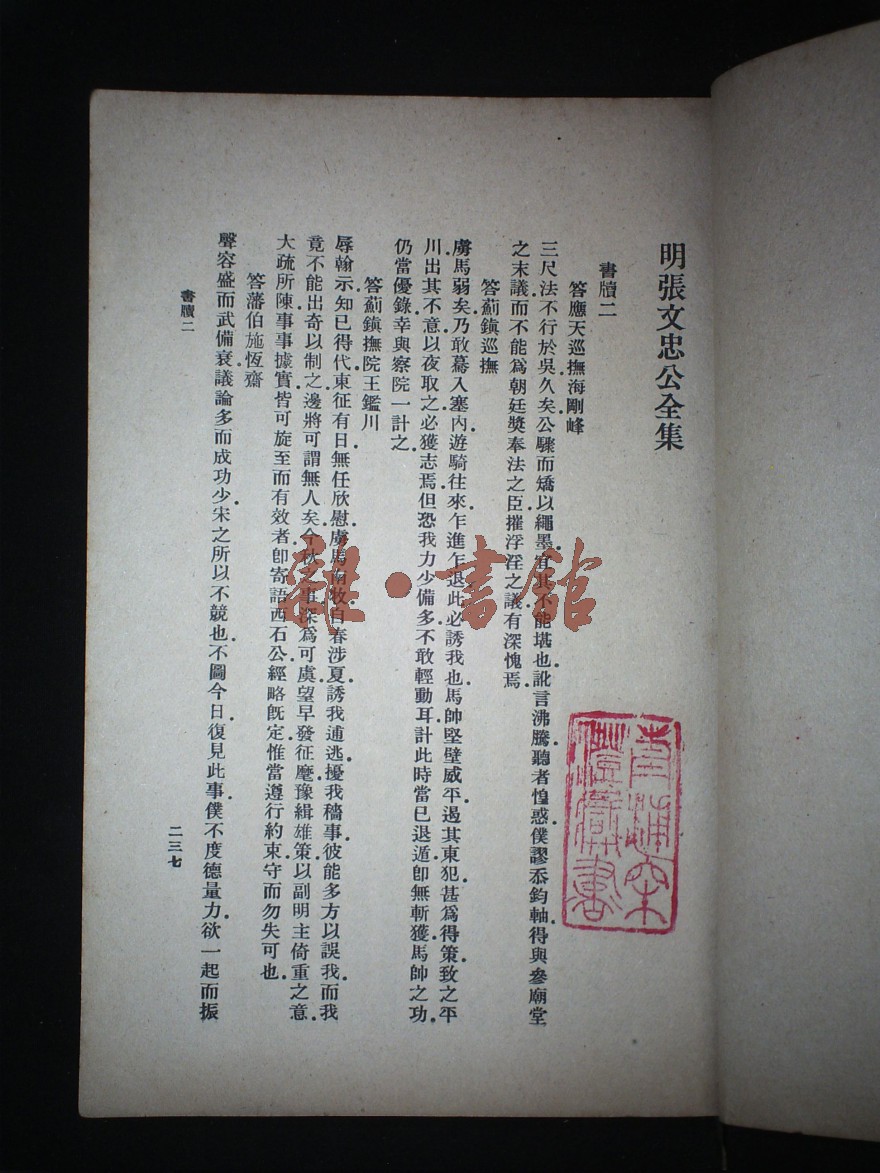 明張文忠公全集
書牘二
答應天巡撫海剛峰
三尺法不行於吳久矣公驟而矯以繩墨宜其不能堪也訛言沸騰聽者惶惑僕謬忝鈞軸得與參廟堂
之末議而不能爲朝廷獎奉法之臣摧浮淫之議有深愧焉
答薊鎭巡撫
虜馬弱矣乃敢驀入塞內遊騎往來乍進乍退此必誘我也馬帥堅壁威平遏其東犯甚爲得策致之平
川出其不意以夜取之必獲志焉但恐我力少備多不敢輕動耳計此時當已退遁卽無斬獲馬帥之功
仍當優錄幸與察院一計之
答薊鎭撫院王鑑川
辱翰示知已得代東征有日無任欣慰虜馬南牧自春涉夏誘我逋逃擾我穡事彼能多方以誤我而我
竟不能出奇以制之邊將可謂無人矣今秋之事深爲可虞望早發征麾豫緝雄策以副明主倚重之意
大疏所陳事事據實皆可旋至而有效者卽寄語西石公經略旣定惟當遵行約束守而勿失可也
答藩伯施恆齋
聲容盛而武備衰議論多而成功少宋之所以不競也不圖今日復見此事僕不度德量力欲一起而振
書牘二
二三七
雜・書館